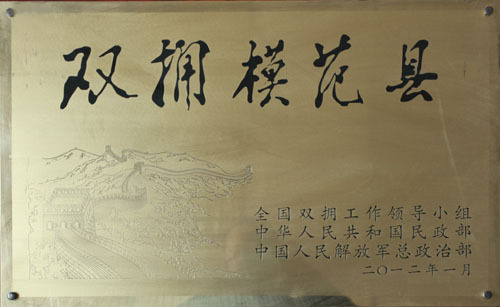 双拥模范县
全国双拥工作领导小组
中华人民共和国民政部
中国人民解放军总政治部
二〇一二年一月